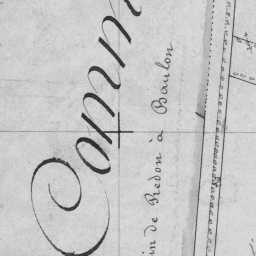 Comm
in de Redon à Baulon